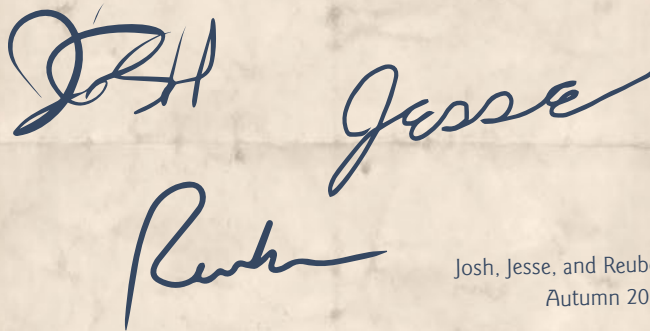 Josh
Jesse
Reuben
Josh, Jesse, and Reub
Autumn 20